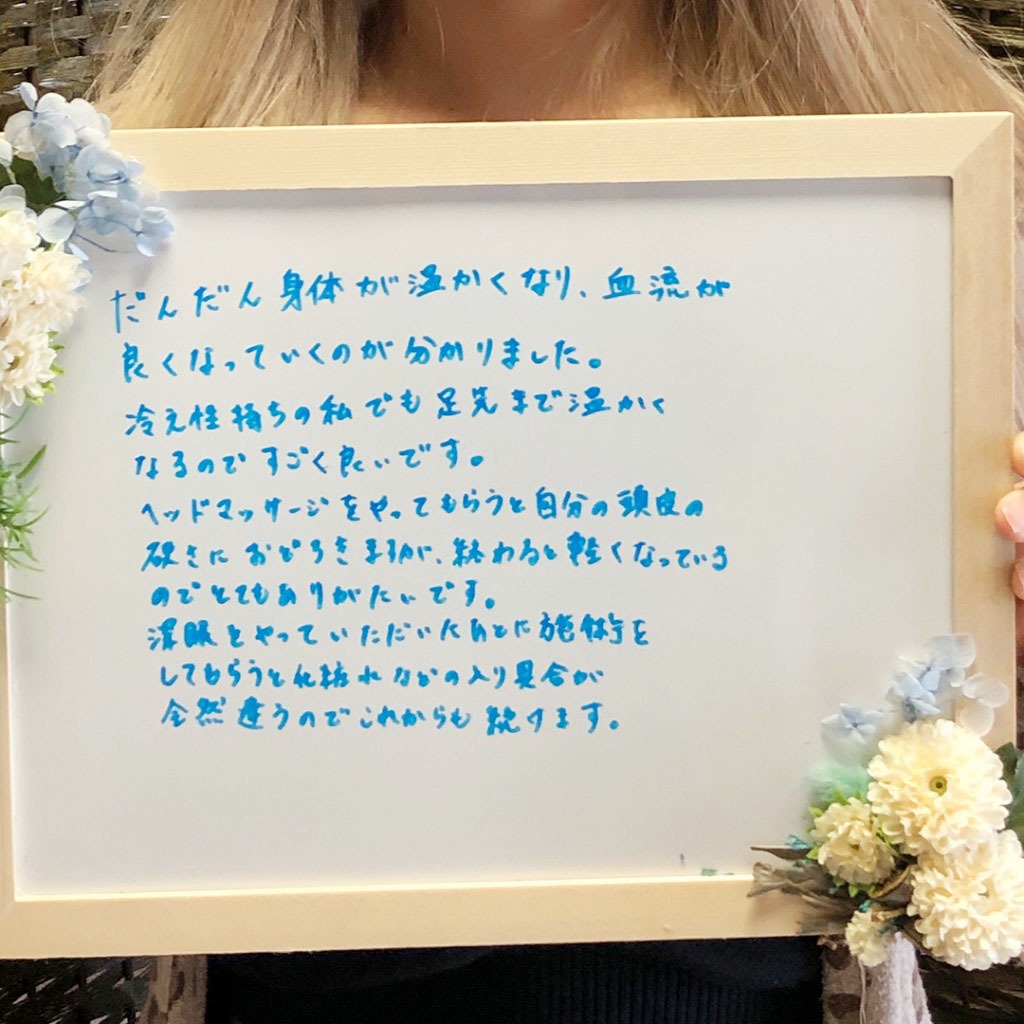 だんだん身体が温かくなり、血流が
良くなっていくのが分かりました。
冷え性持ちの私でも足先まで温かく
なるのですごく良いです。
ヘッドマッサージをやってもらうと自分の頭皮の
硬さにおどろきますが、終わると軽くなっている
のでとてもありがたいです。
深眠をやっていただいたあとに施術を
してもらうと化粧水などの入り具合が
全然違うのでこれからも続けます。